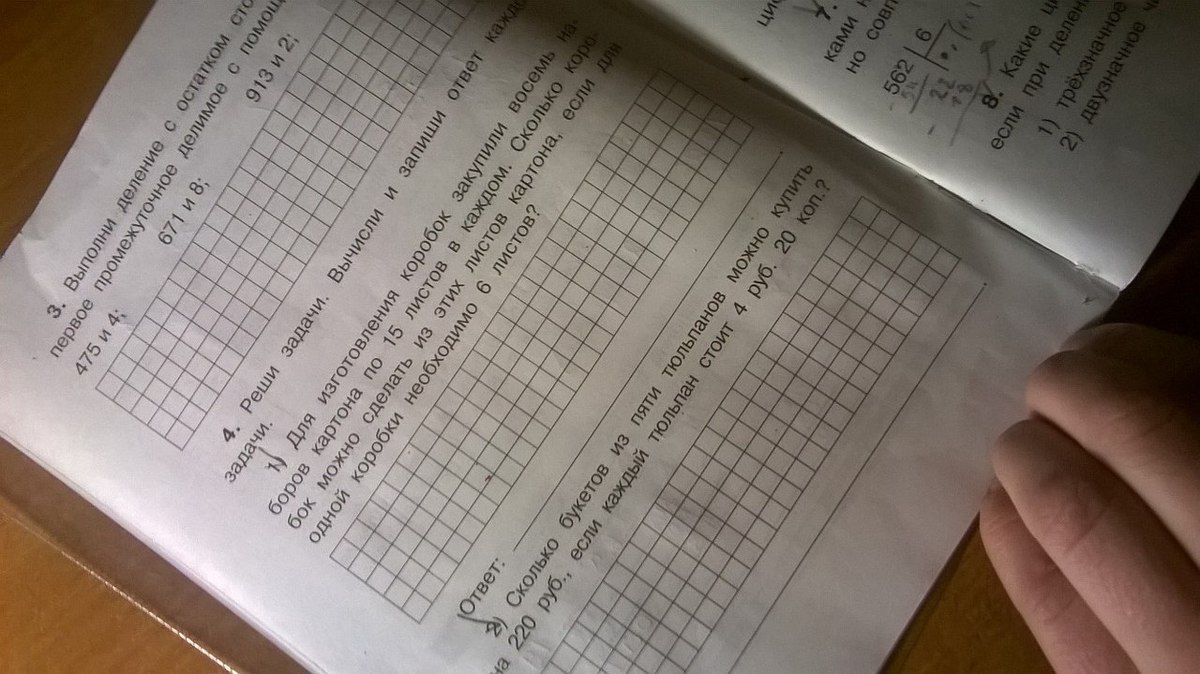 3. Выполни деление с остатком
первое промежуточное делимое с
475 и 4; 671 и 8; 913 и 2;
4. Реши задачи. Вычисли и запиши ответ
задачи.
1) Для изготовления коробок закупили восемь на-
боров картона по 15 листов в каждом. Сколько коро-
бок можно сделать из этих листов картона, если для
одной коробки необходимо 6 листов?
Ответ:
2) Сколько букетов из пяти тюльпанов можно купить
на 220 руб., если каждый тюльпан стоит 4 руб. 20 коп.?
7.
ками
но
562 6
8. Какие
если при
1) трёхзначное
2) двузначное